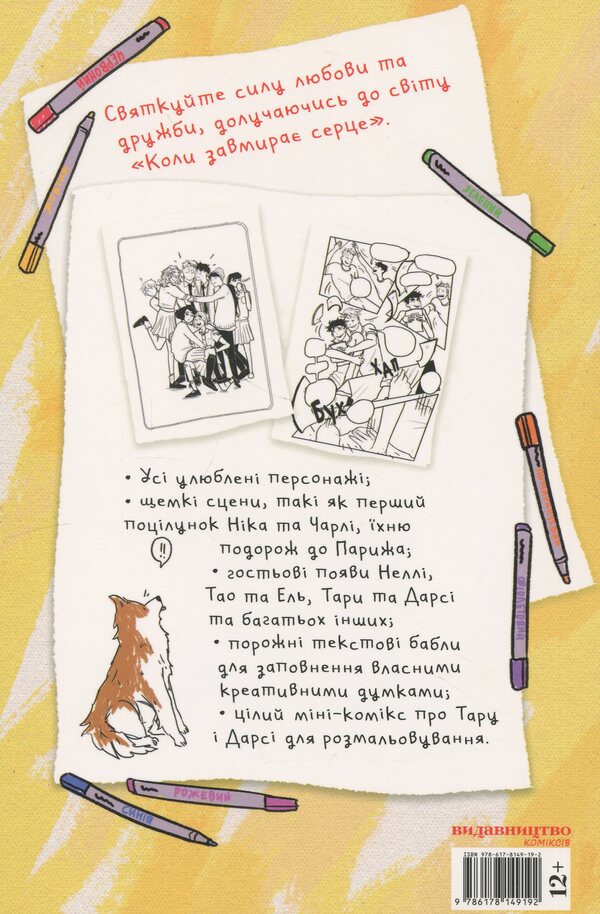 ЧЕРВОНИЙ
Святкуйте силу любови та
дружби, долучаючись до світу
«Коли завмирає серце».
ЗЕЛЕНИЙ
ХАП
БУХ
• Усі улюблені персонажі;
• щемкі сцени, такі як перший
поцілунок Ніка та Чарлі, їхню
подорож до Парижа;
!!
• гостьові появи Неллі,
Тао та Ель, Тари та Дарсі
та багатьох інших;
• порожні текстові бабли
для заповнення власними
креативними думками;
• цілий міні-комікс про Тару
і Дарсі для розмальовування.
ФІОЛЕТОВИЙ
РОЖЕВИЙ
СИНІЙ
ВИДАВНИЦТВО
КОМІКСІВ
ISBN 978-617-8149-19-2
9 786178 149192
12+